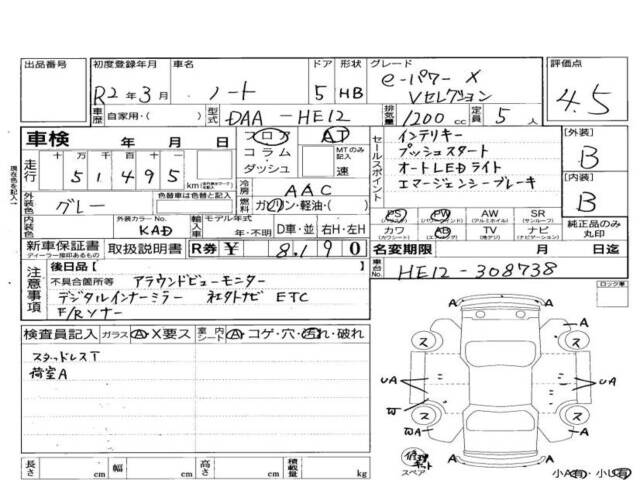 出品番号
初度登録年月 車名 ドア 形状 グレード 評価点
R2年3月 ノート 5 HB e-パワー X Vセレクション 4.5
車歴 自家用・( ) 型式 DAA-HE12 排気量 1200 cc 定員 5人
車検 年 月 日 フロア AT
コラム・ MTのみ記入
ダッシュ 速
走行 十 万 千 百 十 一
5 1 4 9 5 km
セールスポイント
インテリキー
プッシュスタート
オートLEDライト
エマージェンシーブレーキ
[外装] B
[内装] B
現在色を記入
外装色 グレー 色替車は色替と記入
冷房 AAC
燃料 ガソリン・軽油・( )
内装色 外装カラーNo. KAD 輸入車 モデル年式 年・不明 D車・並 右H・左H
PS PW AW SR
(パワステ) (パワーウインド) (アルミホイル) (サンルーフ)
カワ AB TV ナビ
(カワシート) (エアバッグ) (地デジ) (ナビゲーション)
純正品のみ丸印
新車保証書 取扱説明書 R券 ¥ 8,190
ディーラー捺印あるもの
名変期限 月 日迄
車台No. HE12-308738
注意事項
後日品[ ]
不具合箇所等 アラウンドビューモニター
デジタルインナーミラー 社外ナビ ETC
F/Rソナー
ロック車
検査員記入 ガラス A・X要ス 室内シート A・コゲ・穴・汚れ・破れ
スタッドレスT
荷室A
A A
ス ス
A
UA UA
W
ス ス
WA A
A A
修理キット
スペア
小A有・小U有
長さ cm 幅 cm 高さ cm 積載量 kg